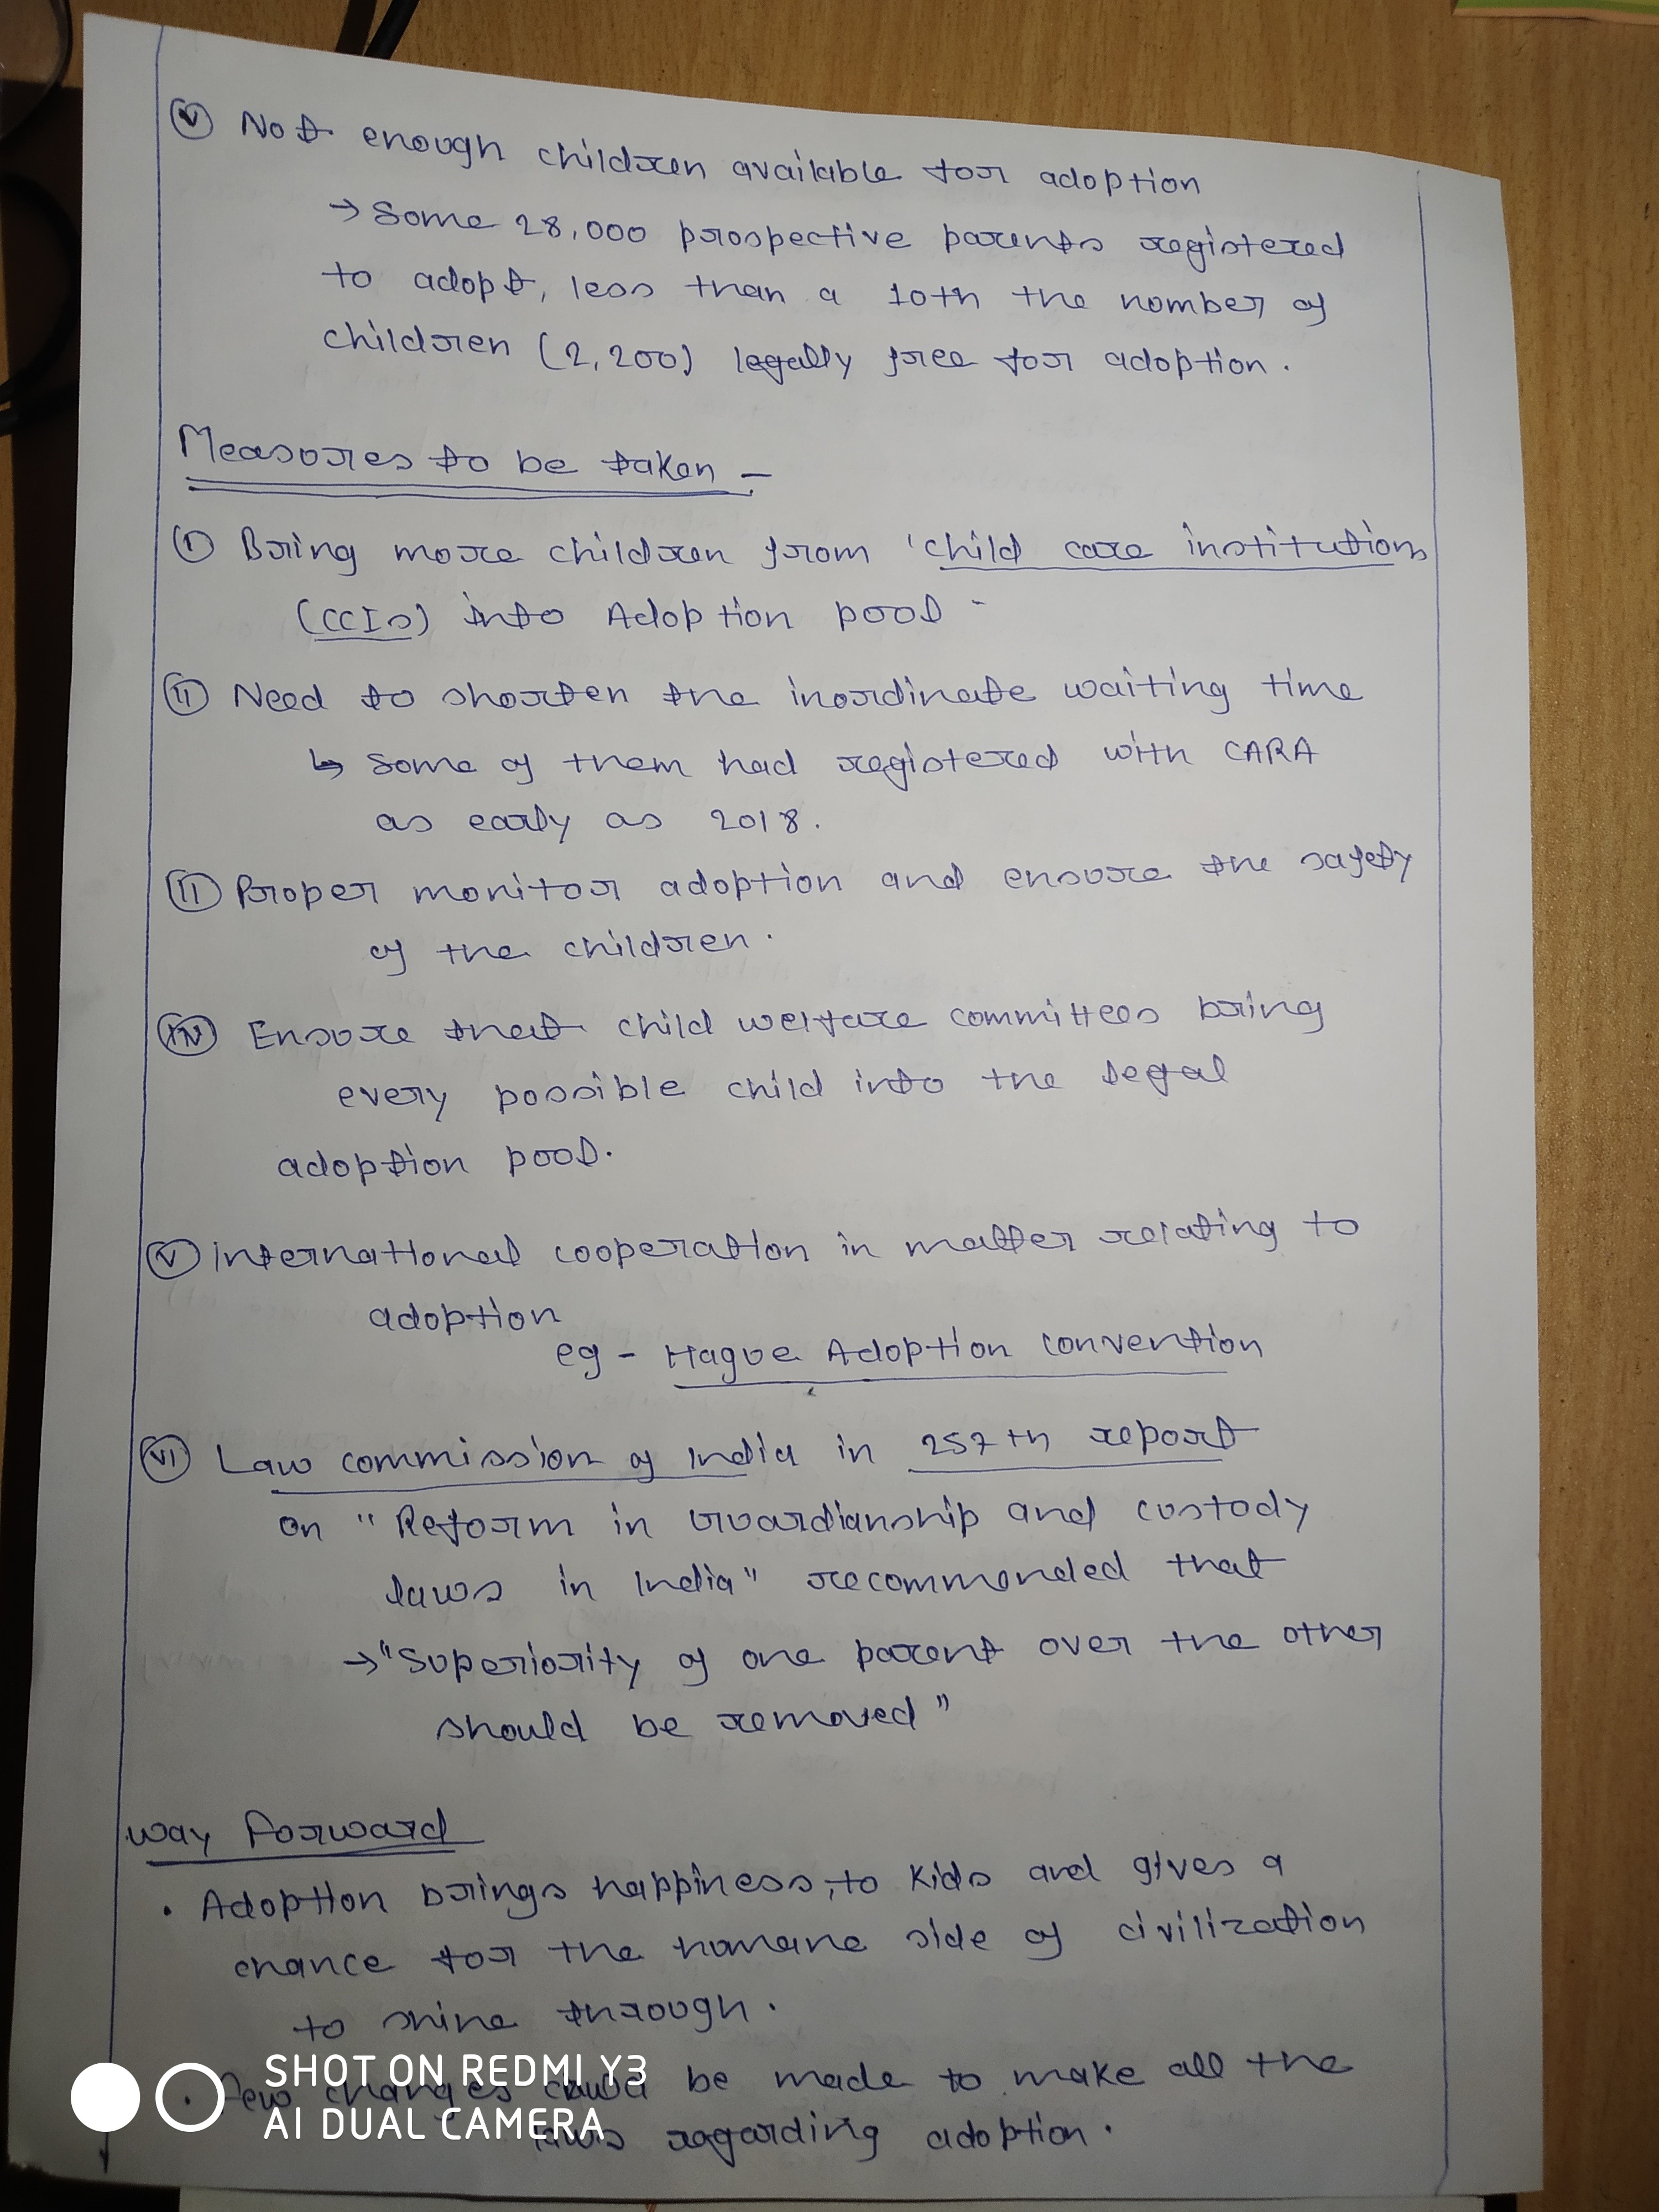 (v) Not enough children available for adoption
→ Some 28,000 prospective parents registered
to adopt, less than a 10th the number of
children (2,200) legally free for adoption.
Measures to be taken –
(I) Bring more children from 'child care institutions
(CCIs) into Adoption pool -
(II) Need to shorten the inordinate waiting time
↳ Some of them had registered with CARA
as early as 2018.
(II) Proper monitor adoption and ensure the safety
of the children.
(IV) Ensure that child welfare committees bring
every possible child into the legal
adoption pool.
(V) international cooperation in matter relating to
adoption
eg - Hague Adoption convention
(VI) Law commission of India in 257th report
on "Reform in Guardianship and custody
laws in India" recommended that
→ "Superiority of one parent over the other
should be removed"
way Forward
• Adoption brings happiness, to kids and gives a
chance for the humane side of civilization
to shine through.
• Few changes could be made to make all the
laws regarding adoption.
SHOT ON REDMI Y3
AI DUAL CAMERA